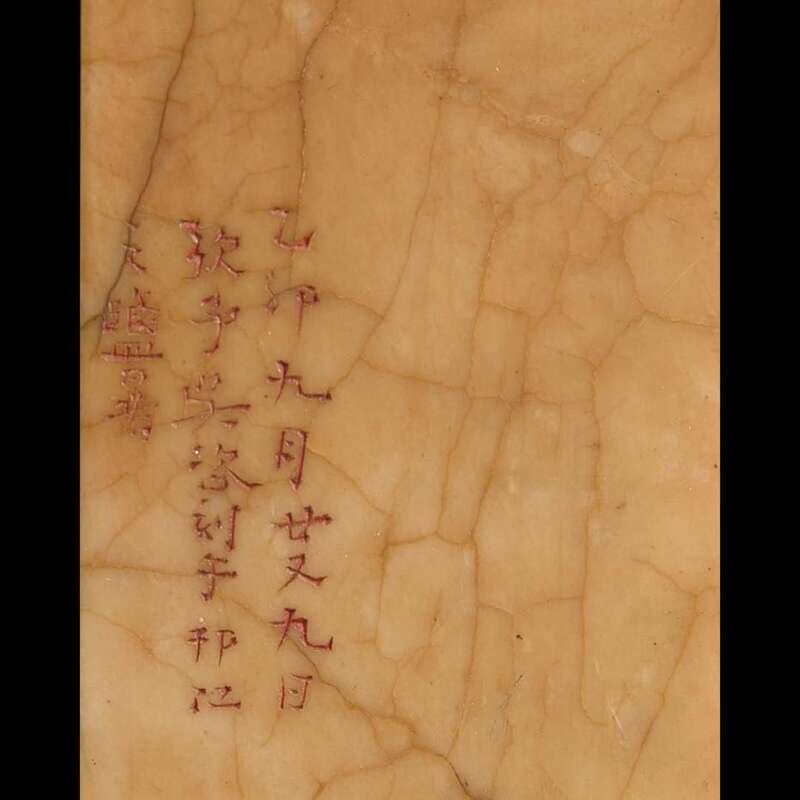 乙卯九月廿又九日
予吳咨刻于邗江
之鹽署